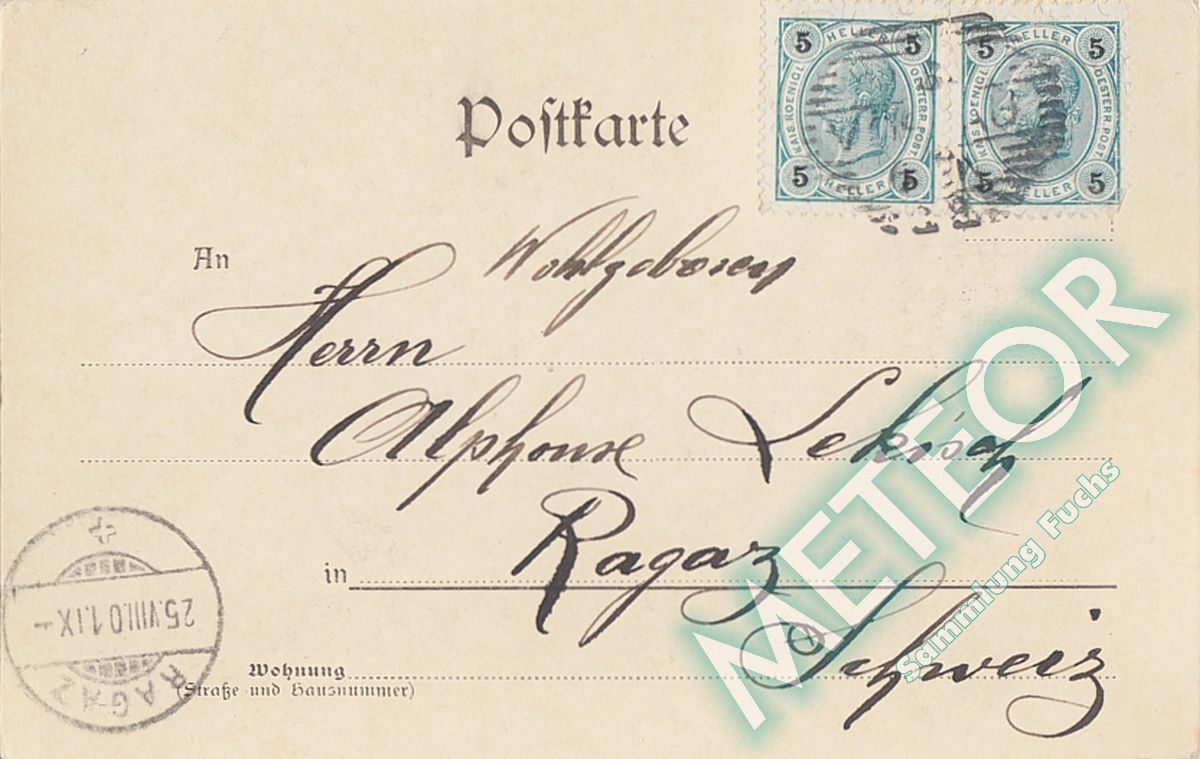 Postkarte
5 HELLER 5
KAIS. KOENIGL. OESTERR. POST
5 HELLER 5
5 HELLER 5
KAIS. KOENIGL. OESTERR. POST
5 HELLER 5
An
Wohlgeboren
Herrn
Alphonse
in Ragaz
Schweiz
Wohnung
(Straße und Hausnummer)
25.VIII.01.IX
RAGAZ
METEOR
Sammlung Fuchs